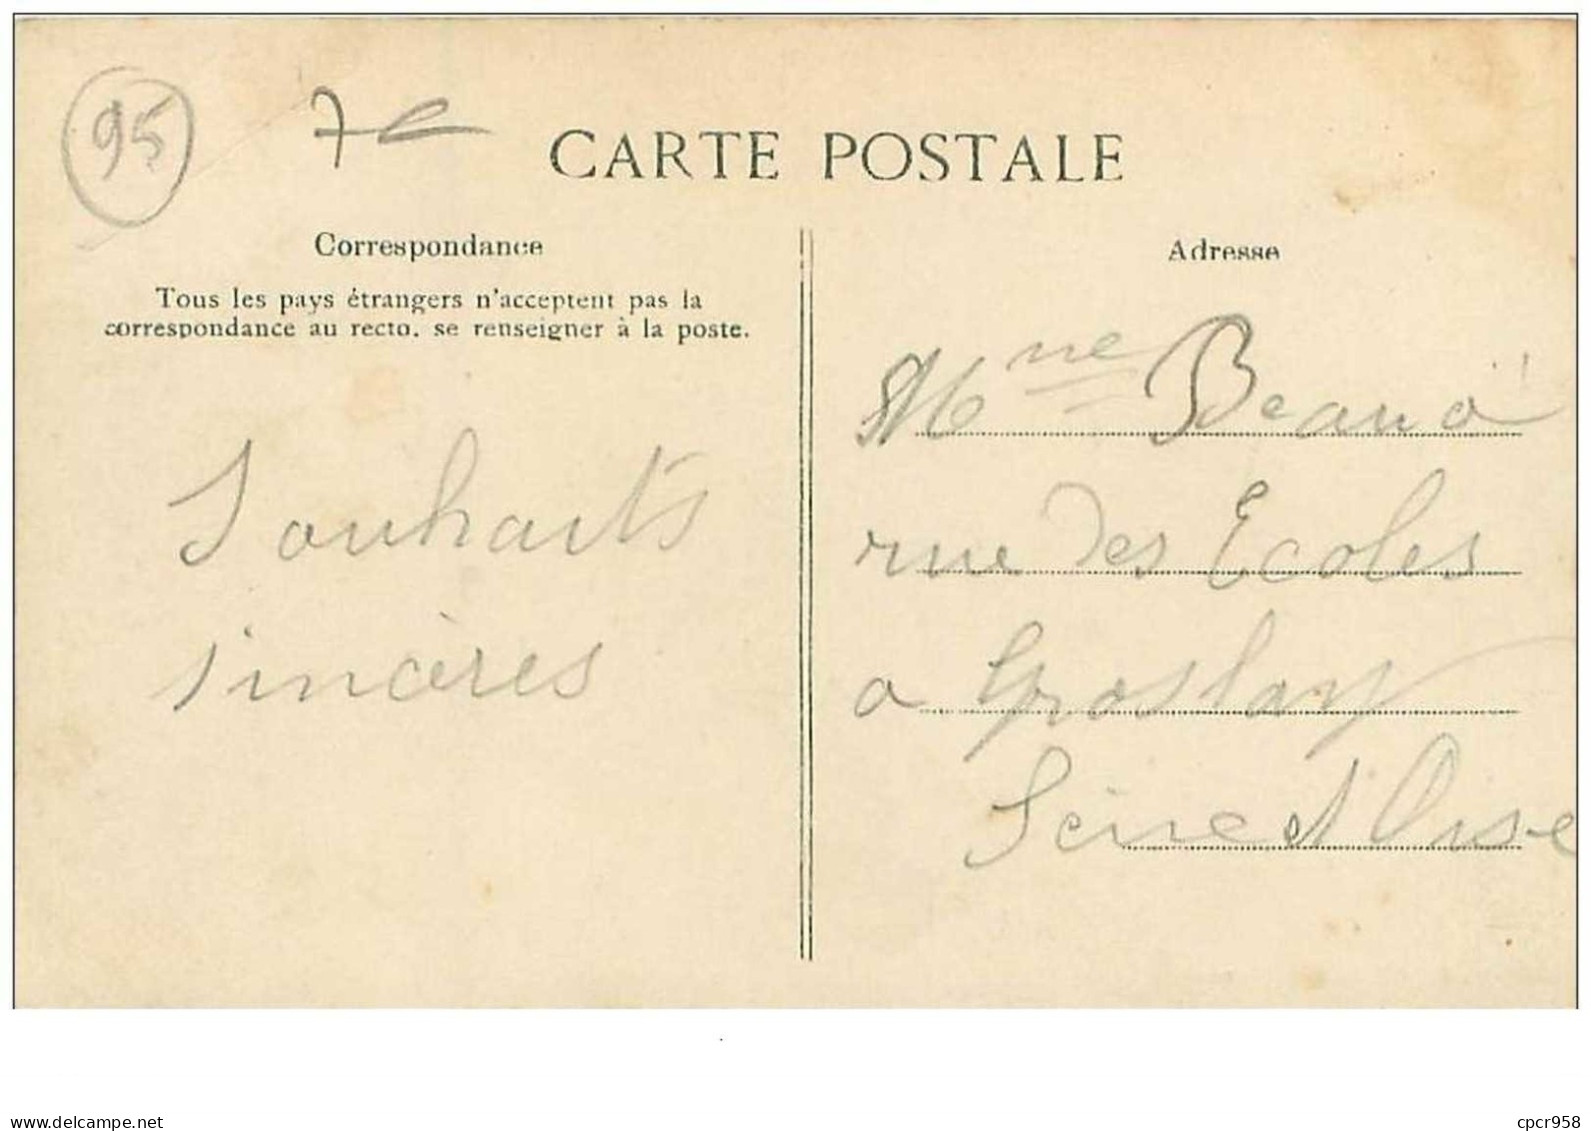 95
7e
CARTE POSTALE
Correspondance
Tous les pays étrangers n'acceptent pas la
correspondance au recto. se renseigner à la poste.
Souhaits
sincères
Adresse
Mme
rue des Ecoles
a Groslay
Seine et Oise
delcampe.net
cpcr958